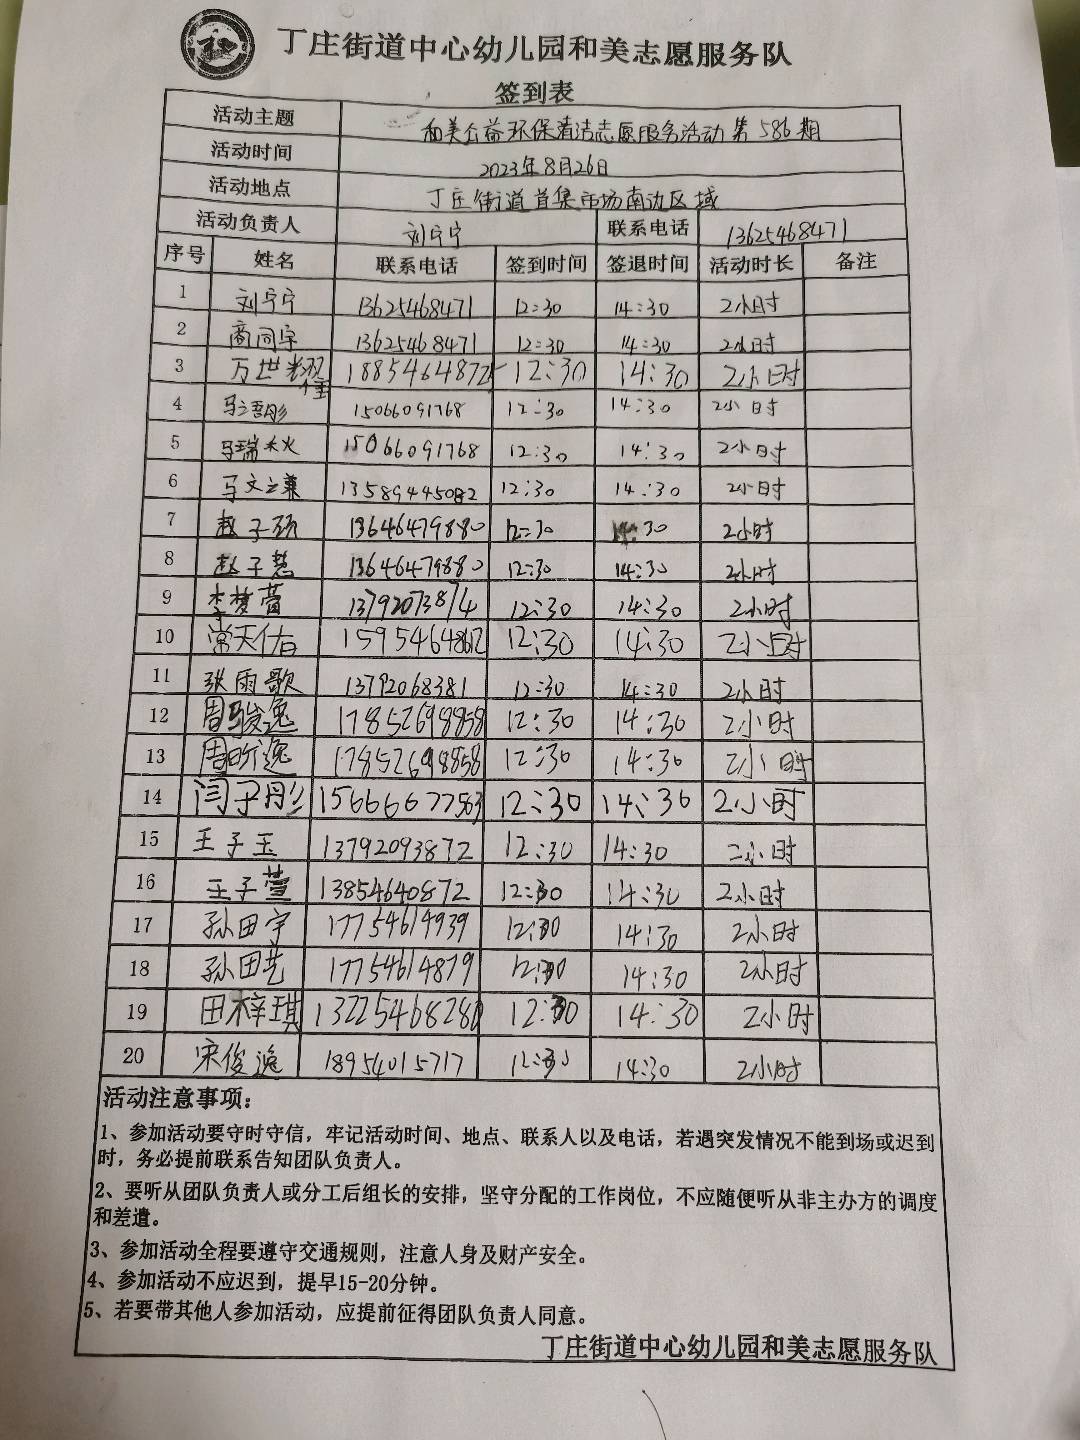 丁庄街道中心幼儿园和美志愿服务队
签到表
活动主题 和美公益环保清洁志愿服务活动第586期
活动时间 2023年8月26日
活动地点 丁庄街道首集市场南边区域
活动负责人 刘宁宁 联系电话 13625468471
序号 姓名 联系电话 签到时间 签退时间 活动时长 备注
1 刘宁宁 13625468471 12:30 14:30 2小时
2 商同宇 13625468471 12:30 14:30 2小时
3 万世 1885464872 12:30 14:30 2小时
4 马语彤 15066091768 12:30 14:30 2小时
5 马瑞 15066091768 12:30 14:30 2小时
6 马文 12:30 14:30 2小时
7 赵子硕 13646479880 12:30 14:30 2小时
8 赵子慧 13646479880 12:30 14:30 2小时
9 李梦萱 13792073874 12:30 14:30 2小时
10 常天佑 15954648612 12:30 14:30 2小时
11 张雨歌 13792068381 12:30 14:30 2小时
12 周骏逸 17852698858 12:30 14:30 2小时
13 周昕逸 17852698858 12:30 14:30 2小时
14 闫子彤 15666677563 12:30 14:30 2小时
15 王子玉 13792093872 12:30 14:30 二小时
16 王子萱 13854640872 12:30 14:30 2小时
17 孙田宇 17754614939 12:30 14:30 2小时
18 孙田艺 17754614879 12:30 14:30 2小时
19 田梓琪 13225468280 12:30 14:30 2小时
20 宋俊逸 18954015717 12:30 14:30 2小时
活动注意事项：
1、参加活动要守时守信，牢记活动时间、地点、联系人以及电话，若遇突发情况不能到场或迟到
时，务必提前联系告知团队负责人。
2、要听从团队负责人或分工后组长的安排，坚守分配的工作岗位，不应随便听从非主办方的调度
和差遣。
3、参加活动全程要遵守交通规则，注意人身及财产安全。
4、参加活动不应迟到，提早15-20分钟。
5、若要带其他人参加活动，应提前征得团队负责人同意。
丁庄街道中心幼儿园和美志愿服务队